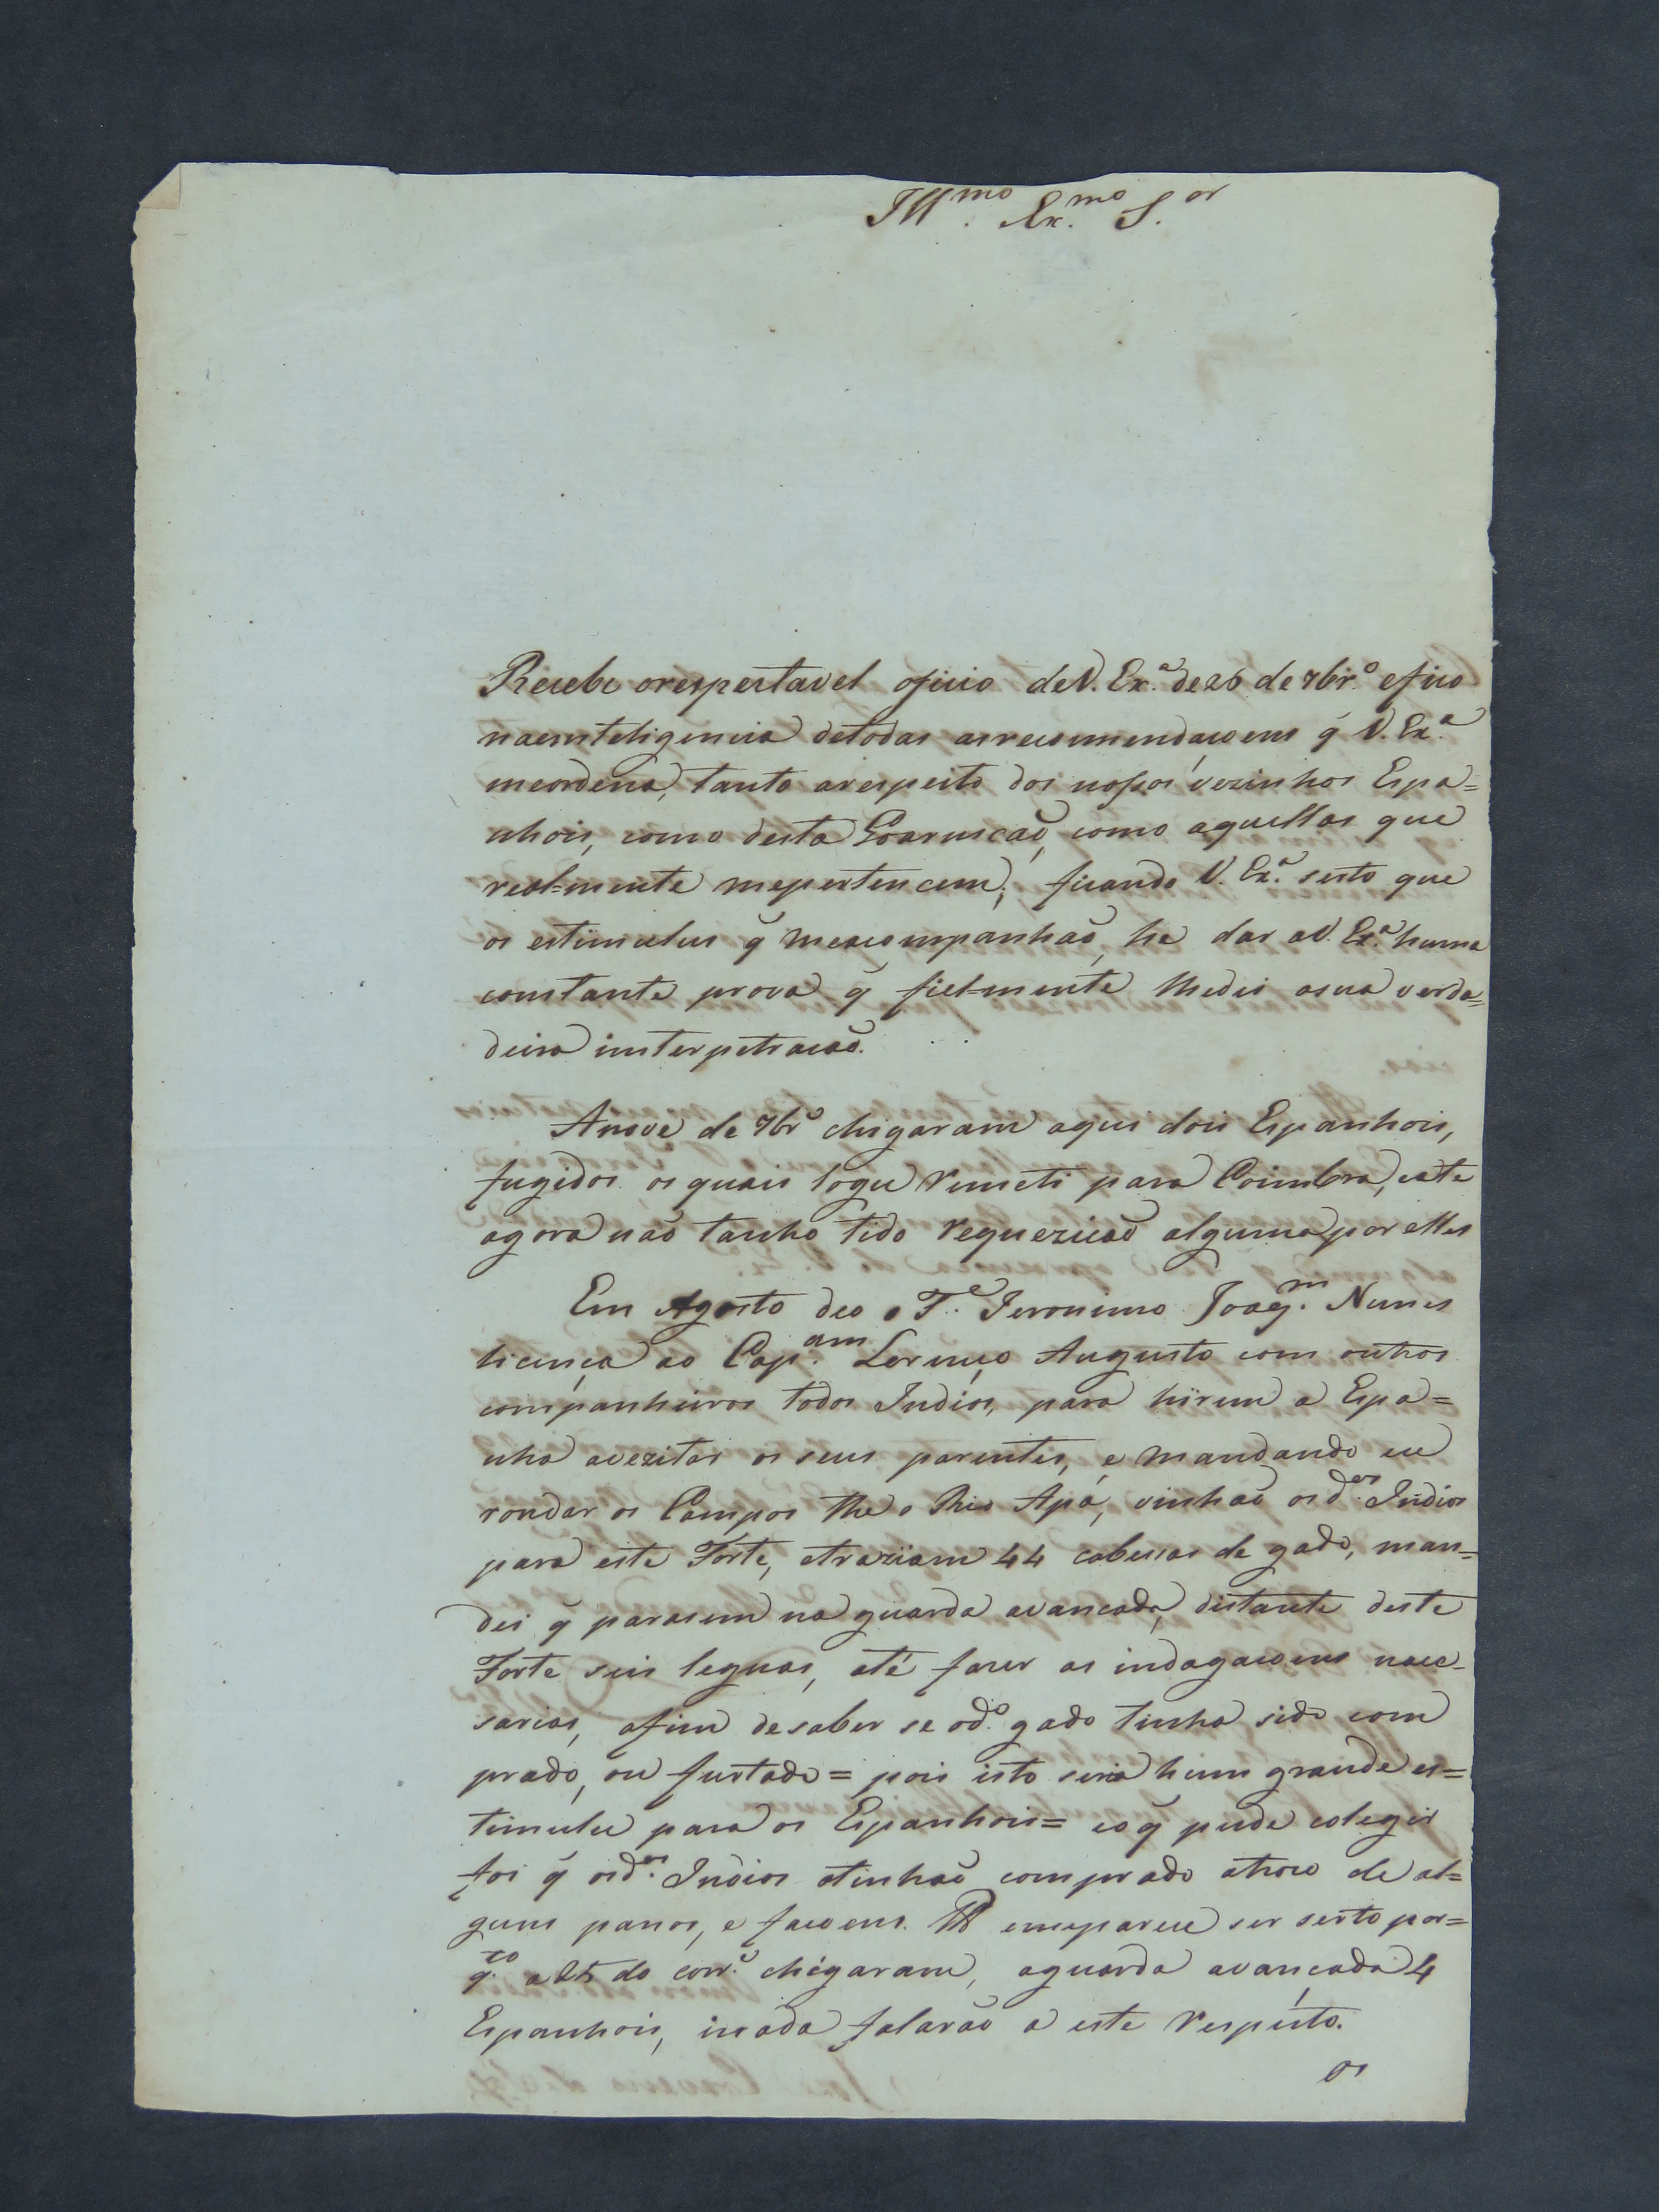 Ill.mo Ex.mo S.or
Recebi orespeitavel oficio deV. Ex.ª de 26 de 7br.º efico
naemteligencia detodas asrecomendaçoens q̃ V. Ex.ª
meordena, tanto arespeito dos nossos vezinhos Espa=
nhois, como desta Goarnicaõ, como aquellas que
real=mente mepertencem; ficando V. Ex.ª serto que
os estimulus q̃ meacompanhaõ, he dar aV. Ex.ª huma
constante prova q̃ fiel=mente lhedei asua verda=
deira imterpetracaõ.
Anove de 7br.º chigaram aqui dois Espanhois,
fugidos os quais logu remeti para Coimbra, eate
agora naõ tanho tido requezicaõ alguma por elles
Em Agosto deo o T.e Jeronimo Joaq.m Nunes
licença ao Cap.am Lorenço Augusto com outros
companheiros todos Indios, para hirem a Espa=
nha avezitar os seus parentes, e mandando eu
rondar os Campos the o Rio Apá, vinhaõ osd.os Indios
para este Forte, etraziam 44 cabessas de gado, man=
dei q̃ parasem na guarda avancada, distante deste
Forte seis leguas, até fazer as indagacoens nece-
sarias, afim desaber se od.º gado tinha sido com
prado, ou furtado = pois isto seria hum grande es=
timulu para os Espanhois = eoq̃ pude colegir
foi q̃ osd.os Indios otinhaõ comprado atroco de al=
guns panos, e facoens. E emeparece ser serto por=
q.to a 25 do corr.e chégaram, aguarda avançada 4
Espanhois, inada falaraõ a este respeito.
os